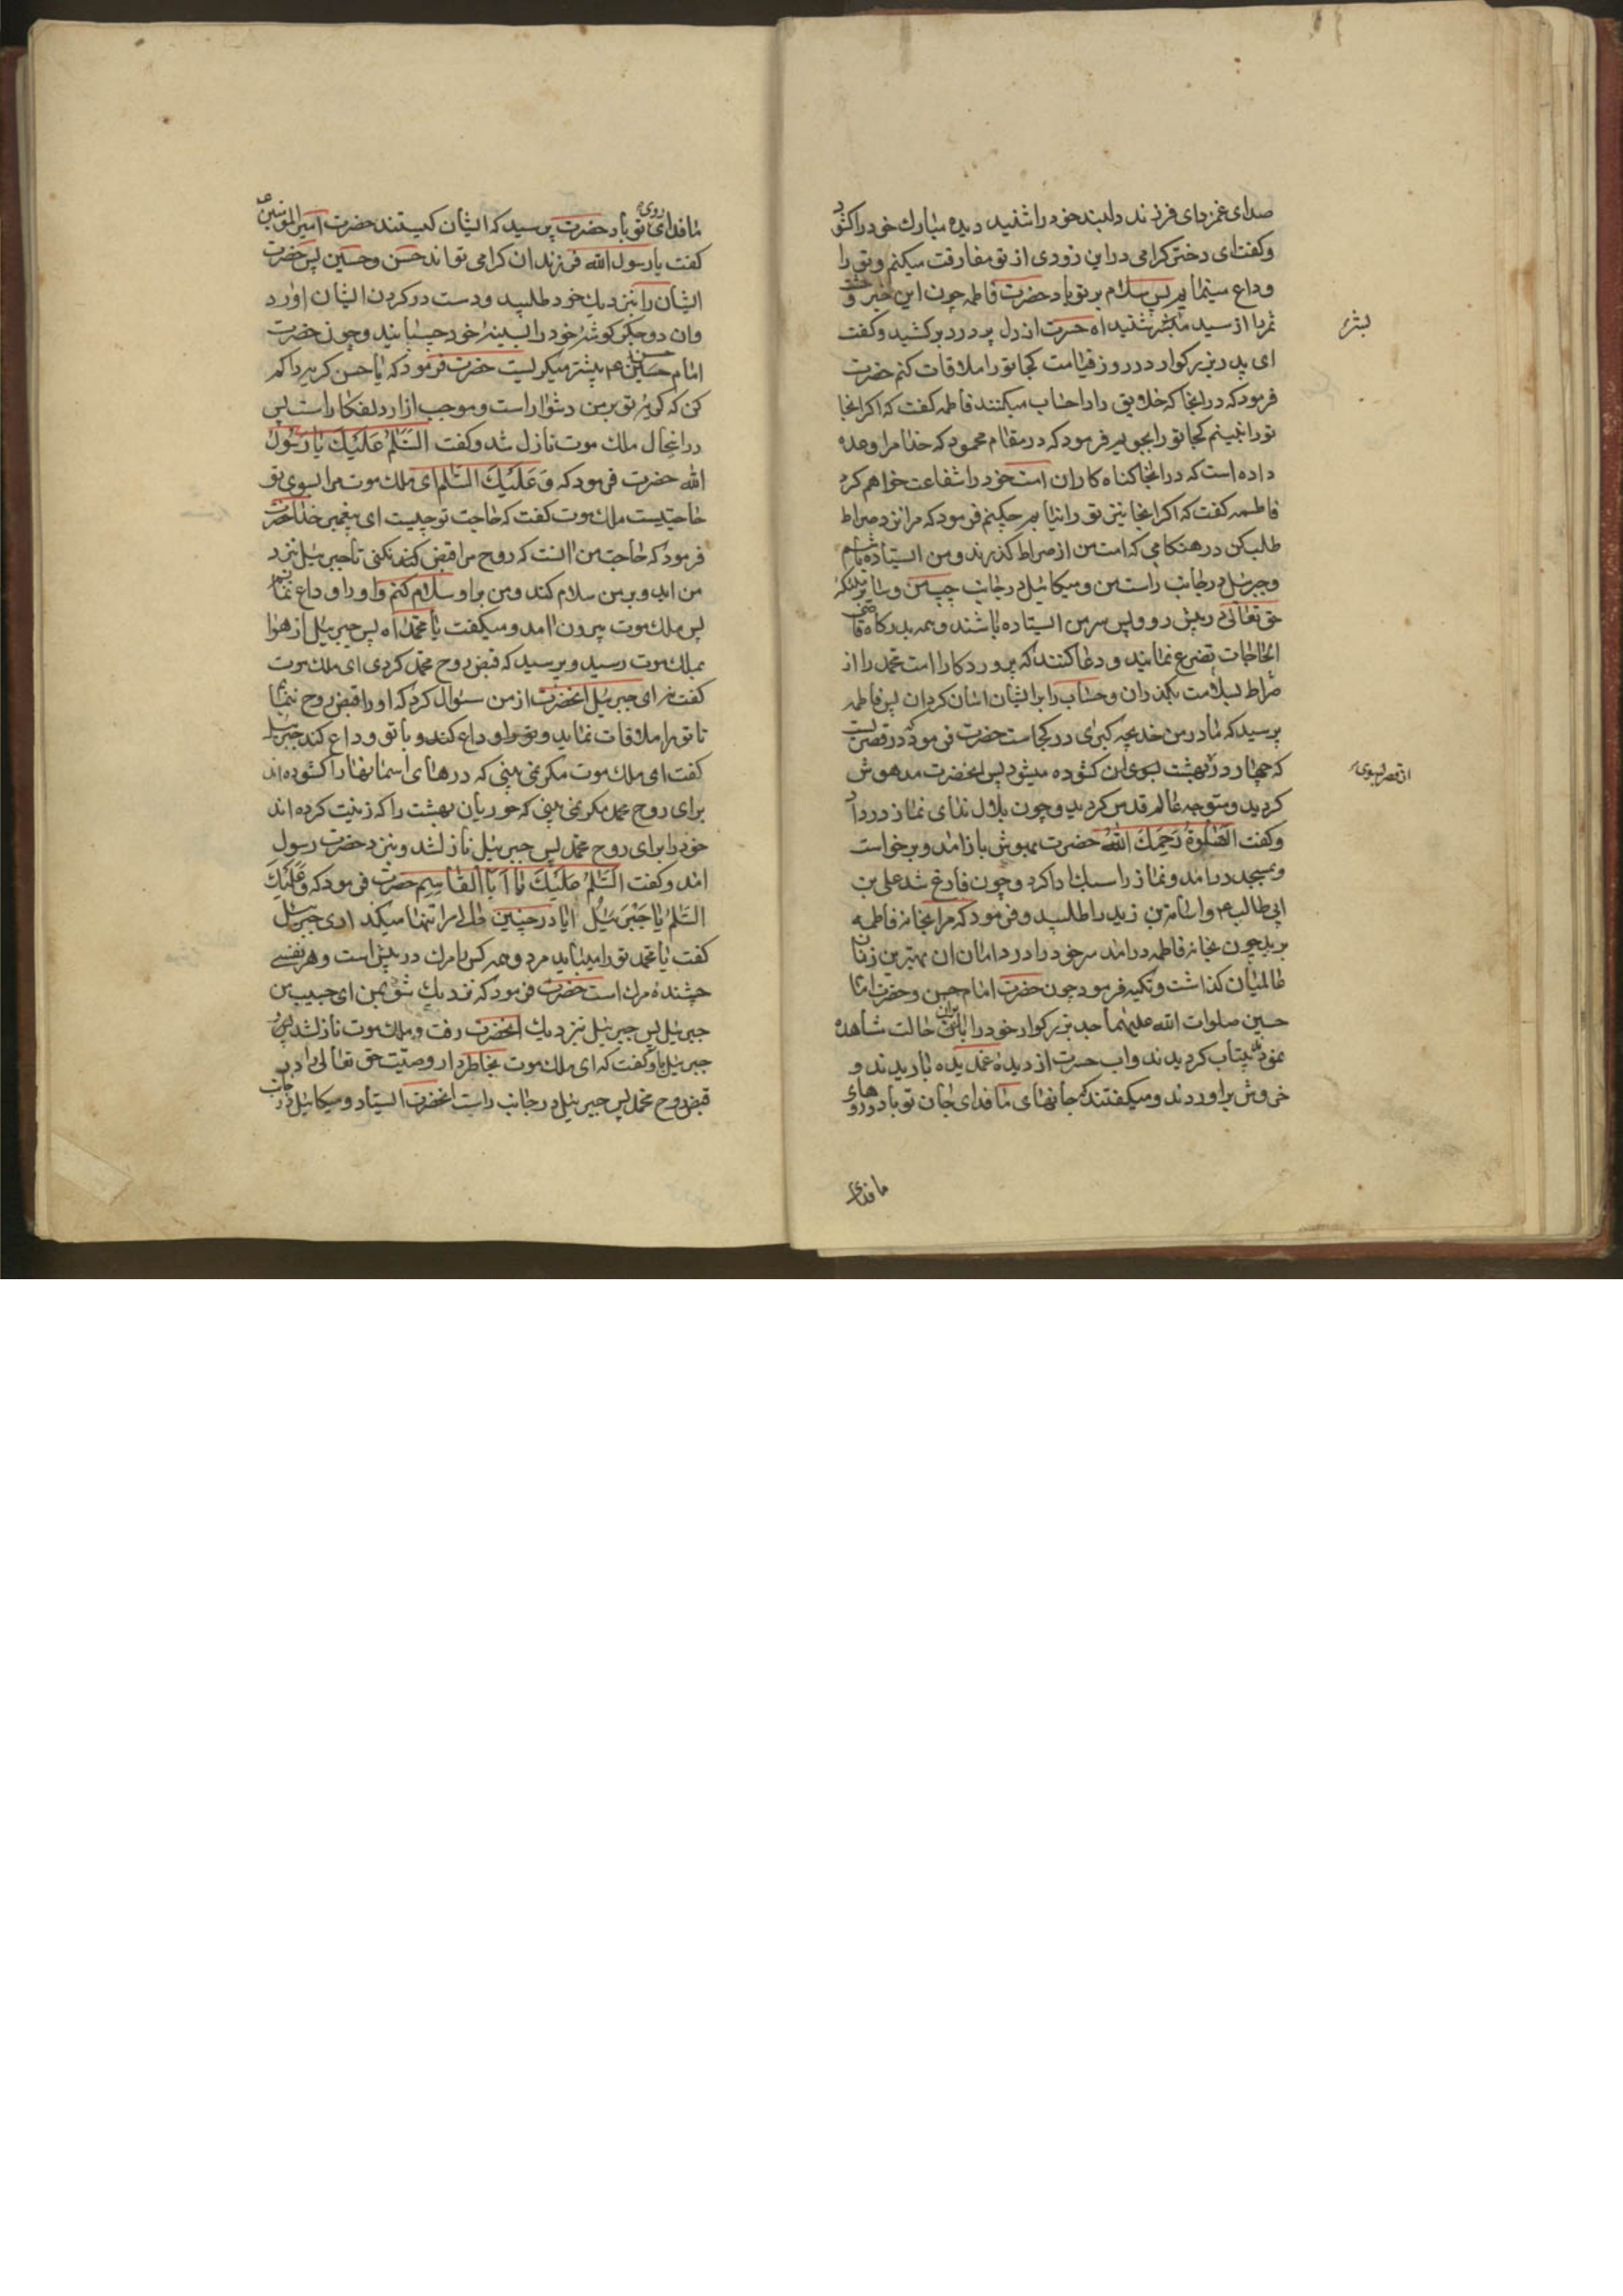 صدای غمزدای فرزند دلبند خود را شنید دیده مبارك خود را کشود
و کفت ای دختر کرامی در این زودی از تو مفارقت میکنم و تو را
وداع مینمایم پس سلام بر تو باد حضرت فاطمه چون این خبر وحشت
ثمر را از سید بشر شنید اه حسرت از دل پر درد بر کشید و کفت
بشر
ای پدر بزرکوار در روز قیامت کجا تو را ملاقات کنم حضرت
فرمود که در انجا که خلایق را حساب میکنند فاطمه کفت که اکر انجا
تو را نبینم کجا تو را بجویم فرمود که در مقام محمود که خدا مرا وعده
داده است که در انجا کناه کاران امت خود را شفاعت خواهم کرد
فاطمه کفت که اکر انجا نیز تو را نیابم چکنم فرمود که مرا نزد صراط
طلب کن در هنکامی که امت من از صراط کذرند و من ایستاده باشم
و جبرئیل در جانب راست من و میکائیل در جانب چپ من و سایر ملئکه
حق تعالی در پیش رو و پس سر من ایستاده باشند و همه بدرکاه قاضی
الحاجات تضرع نمایند و دعا کنند که پروردکارا امت محمد را از
صراط بسلامت بکذران و حساب را بر ایشان اسان کردان پس فاطمه
پرسید که مادر من خدیجه کبری در کجاست حضرت فرمود که در قصریست
که چهار در بهشت بسوی ان کشوده میشود پس انحضرت مدهوش
از قصر بسوی
کردید و متوجه عالم قدس کردید و چون بلال ندای نماز در داد
و کفت الصَّلوةُ رَحِمَكَ اللهُ حضرت بهوش باز امد و برخواست
و بمسجد در امد و نماز را سبك ادا کرد و چون فارغ شد علی بن
ابی طالب ع و اسامة بن زید را طلبید و فرمود که مرا بخانه فاطمه
برید چون بخانه فاطمه در امد سر خود را در دامان ان بهترین زنان
عالمیان کذاشت و تکیه فرمود چون حضرت امام حسن و حضرت امام
حسین صلوات الله علیهما جد بزرکوار خود را بر ان حالت مشاهده
نمودند بیتاب کردیدند و اب حسرت از دیده غمدیده باریدند و
خروش بر اوردند و میکفتند که جانهای ما فدای جان تو باد و روهای
ما فدای
ما فدای روی تو باد حضرت پرسید که ایشان کیستند حضرت امیر المؤمنین ع
کفت یا رسول الله فرزندان کرامی تواند حسن و حسین پس حضرت
ایشان را بنزدیك خود طلبید و دست در کردن ایشان اورد
و ان دو جکر کوشه خود را بسینه خود چسبانید و چون حضرت
امام حسن ع بیشتر میکریست حضرت فرمود که یا حسن کریه را کم
کن که کریه تو بر من دشوار است و موجب ازار دلفکار است پس
در انحال ملك موت نازل شد و کفت السَّلَمُ عَلَیْكَ یا رَسُولَ
الله حضرت فرمود که وَ عَلَیْكَ السَّلَمُ ای ملك موت مرا بسوی تو
حاجتیست ملك موت کفت که حاجت تو چیست ای پیغمبر خدا حضرت
فرمود که حاجت من انست که روح مرا قبض نکنی تا جبرئیل نزد
من اید و بر من سلام کند و من بر او سلام کنم و او را وداع نمایم
پس ملك موت بیرون امد و میکفت یا محمداه پس جبرئیل از هوا
بملك موت رسید و پرسید که قبض روح محمد کردی ای ملك موت
کفت نه ای جبرئیل انحضرت از من سئوال کرد که او را قبض روح ننمایم
تا تو را ملاقات نماید و تو را وداع کند و با تو وداع کند جبرئیل
کفت ای ملك موت مکر نمی بینی که درهای اسمانها را کشوده اند
برای روح محمد مکر نمی بینی که حوریان بهشت را که زینت کرده اند
خود را برای روح محمد پس جبرئیل نازل شد و بنزد حضرت رسول
امد و کفت السَّلَمُ عَلَیْكَ یا اَبَا القاسِم حضرت فرمود که وَ عَلَیْكَ
السَّلَمُ یا جَبْرَئیلُ ایا در چنین حالی مرا تنها میکذاری جبرئیل
کفت یا محمد تو را میباید مرد و همه کس را مرك در پیش است و هر نفسی
چشنده مرك است حضرت فرمود که نزدیك شو بمن ای حبیب من
جبرئیل پس جبرئیل بنزدیك انحضرت رفت و ملك موت نازل شد پس
جبرئیل باو کفت که ای ملك موت بخاطر دار وصیّت حق تعالی را در
قبض روح محمد پس جبرئیل در جانب راست انحضرت ایستاد و میکائیل در جانب